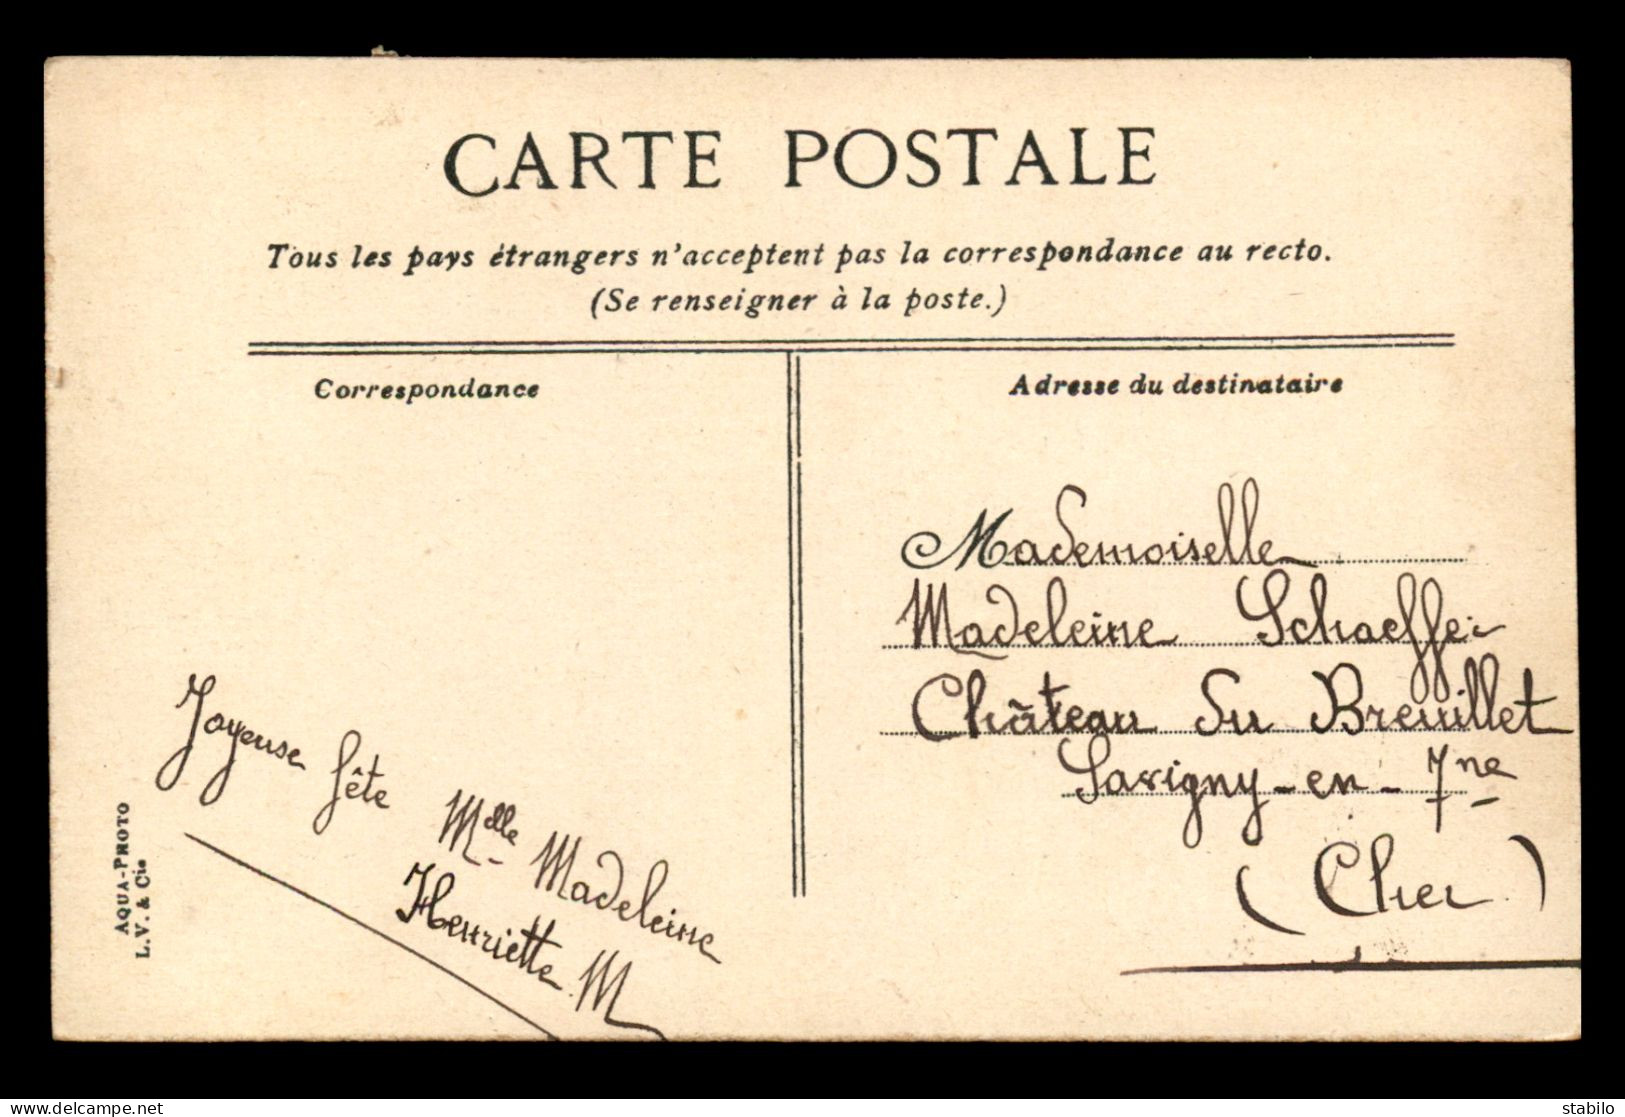 CARTE POSTALE
Tous les pays étrangers n'acceptent pas la correspondance au recto.
(Se renseigner à la poste.)
Correspondance
Joyeuse fête Mlle Madeleine
Henriette M
AQUA-PHOTO
L.V. & Cie
Adresse du destinataire
Mademoiselle
Madeleine Schaeffer
Château du Breuillet
Savigny-en-7ne
(Cher)
delcampe.net
stabilo